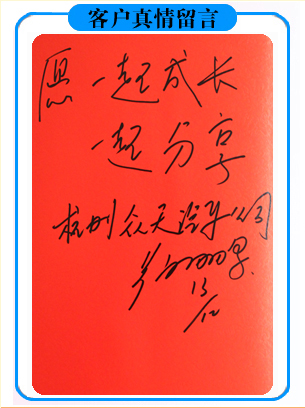 客户真情留言
愿一起成长
一起分享
杭州众天汽车公司
13/12